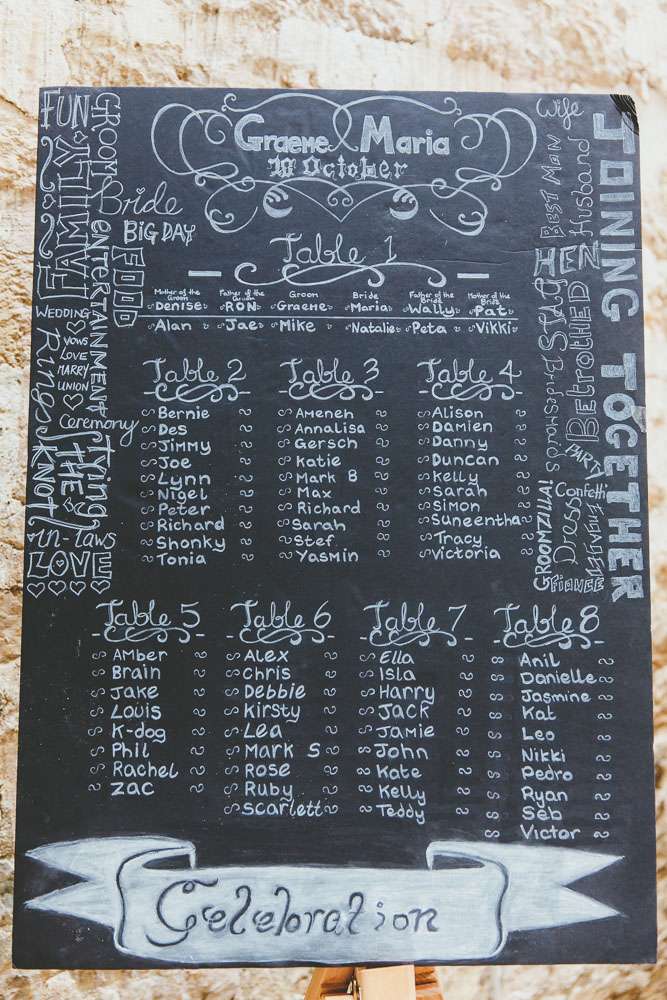 Graeme Maria
18 October
FUN
GROOM
FAMILY
Bride
BIG DAY
ENTERTAINMENT
FOOD
WEDDING
Rings
VOWS
LOVE
MARRY
UNION
Ceremony
Tying
THE
KNOT
in-laws
LOVE
Wife
JOINING TOGETHER
BEST MAN
Husband
HEN
STAG
Betrothed
PARTY
Confetti
Dress
GROOMZILLA!
FIANCEE
Table 1
Mother of the Groom Father of the Groom Groom Bride Father of the Bride Mother of the Bride
Denise RON Graeme Maria Wally Pat
Alan Jae Mike Natalie Peta Vikki
Table 2
Bernie
Des
Jimmy
Joe
Lynn
Nigel
Peter
Richard
Shonky
Tonia
Table 3
Ameneh
Annalisa
Gersch
Katie
Mark B
Max
Richard
Sarah
Stef
Yasmin
Table 4
Alison
Damien
Danny
Duncan
Kelly
Sarah
Simon
Suneentha
Tracy
Victoria
Table 5
Amber
Brain
Jake
Louis
K-dog
Phil
Rachel
Zac
Table 6
Alex
Chris
Debbie
Kirsty
Lea
Mark S
Rose
Ruby
Scarlett
Table 7
Ella
Isla
Harry
Jack
Jamie
John
Kate
Kelly
Teddy
Table 8
Anil
Danielle
Jasmine
Kat
Leo
Nikki
Pedro
Ryan
Seb
Victor
Celebration